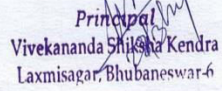 Principal
Vivekananda Shiksha Kendra
Laxmisagar, Bhubaneswar-6